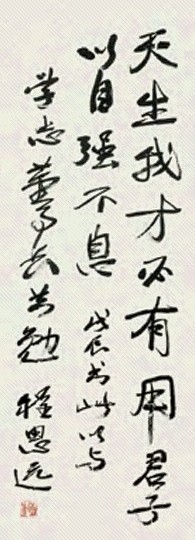 天生我才必有用君子
以自强不息 戊辰书此以与
学志董事长共勉 程思远